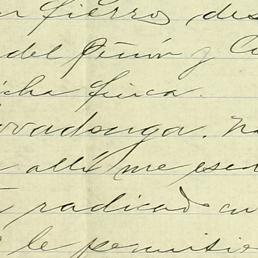 fierro, des
del Peñón y C
cha finca.
vadonga. N
allí me esc
radicad en
le permitie